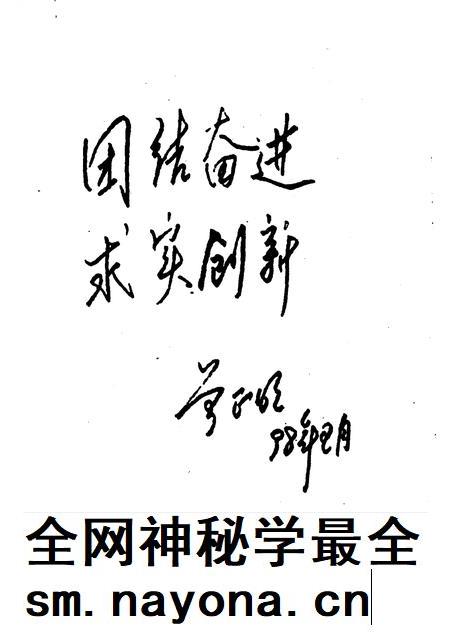 团结奋进
求实创新
98年 月
全网神秘学最全
sm.nayona.cn